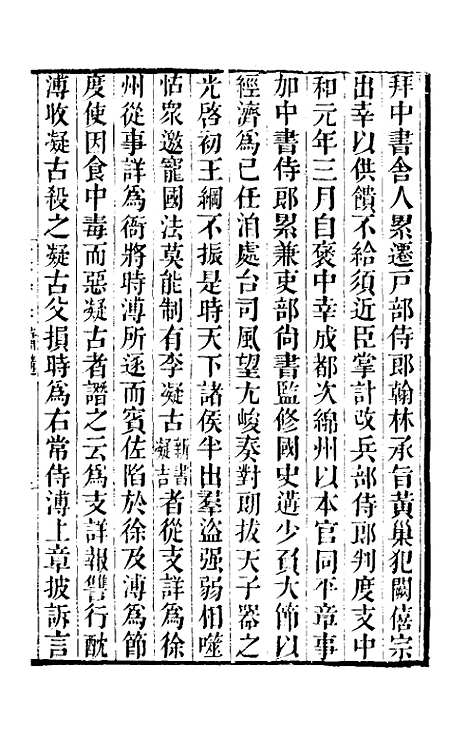 拜中書舍人累遷戸部侍郎翰林承旨黃巢犯闕僖宗
出幸以供饋不給須近臣掌計改兵部侍郎判度支中
和元年三月自褒中幸成都次綿州以本官同平章事
加中書侍郎累兼吏部尚書監修國史遘少負大節以
經濟爲已任洎處台司風望尢峻奏對朗拔天子器之
光啓初王綱不振是時天下諸侯半出羣盜强弱相噬
怙衆邀寵國法莫能制有李凝古新書凝吉者從支詳爲徐
州從事詳爲衙將時溥所逐而賓佐陷於徐及溥爲節
度使因食中毒而惡凝古者譖之云爲支詳報讐行酖
溥收凝古殺之凝古父損時爲右常侍溥上章披訴言